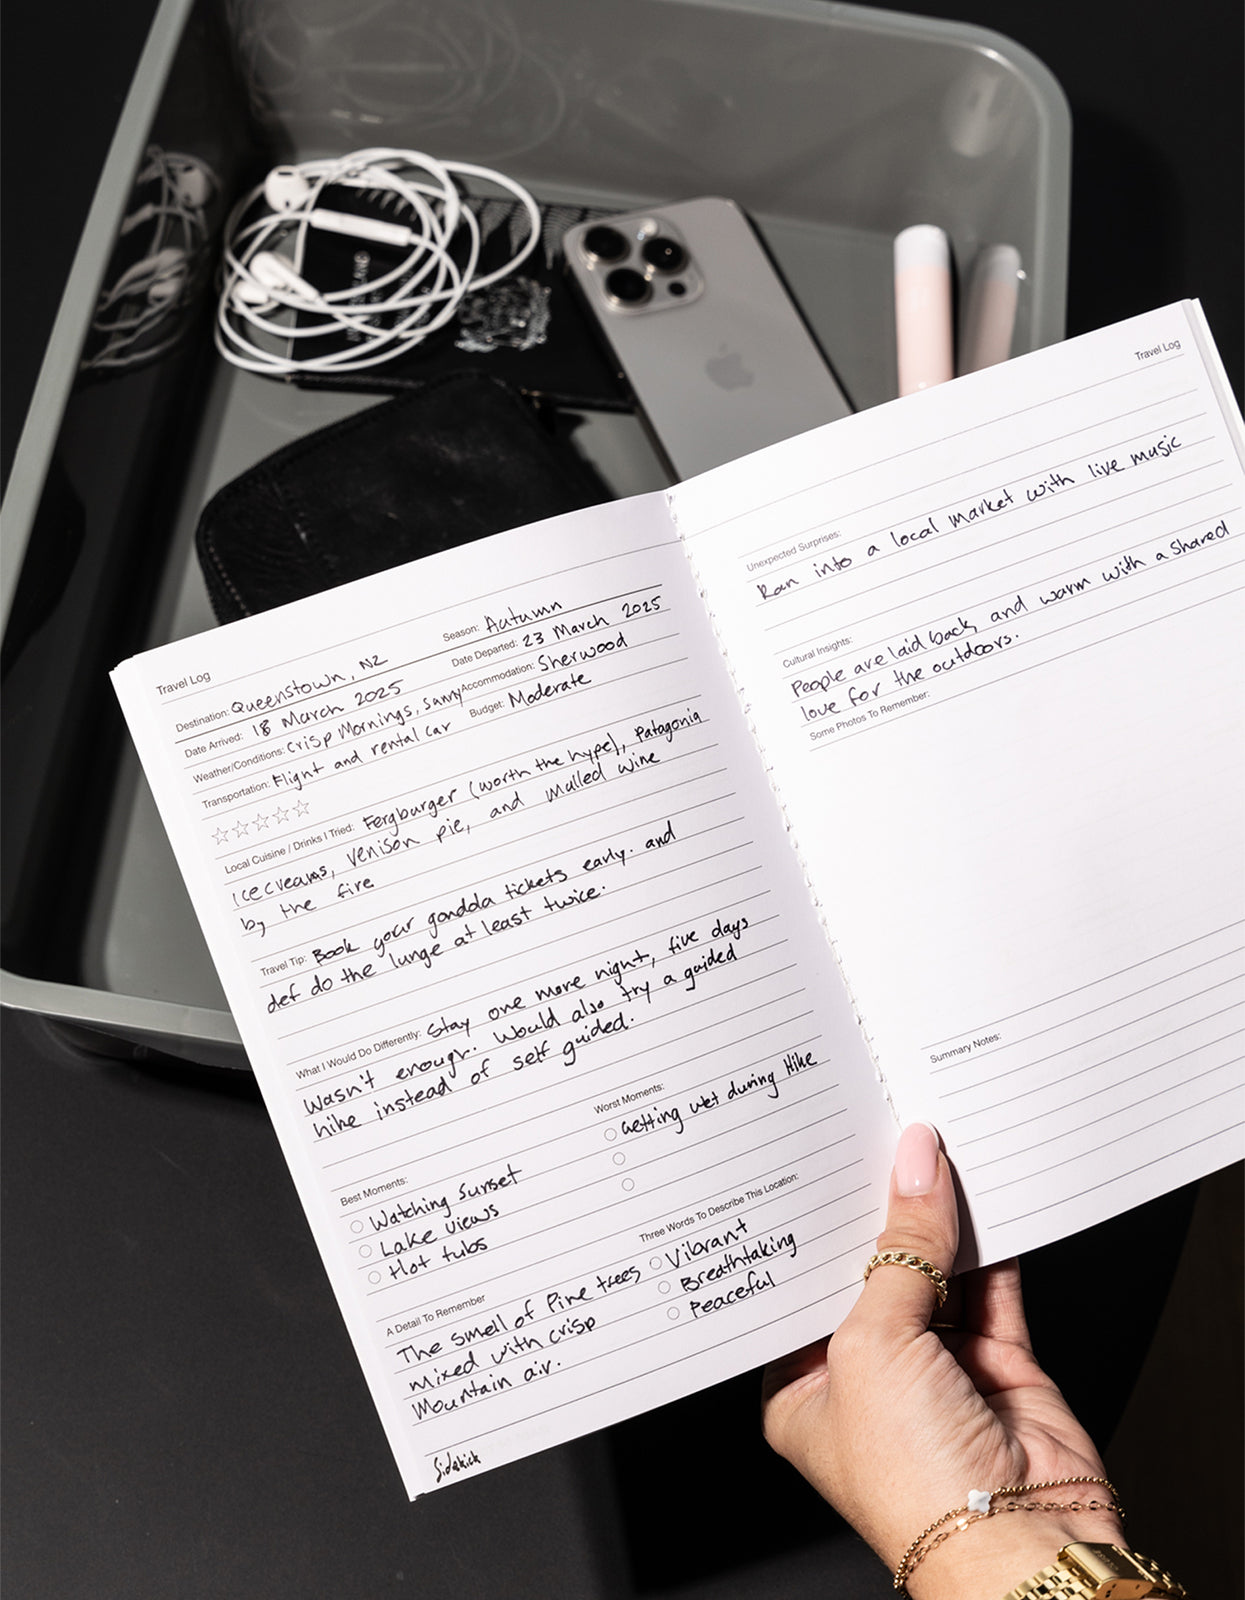 Travel Log
Destination: Queenstown, NZ
Season: Autumn
Date Arrived: 18 March 2025
Date Departed: 23 March 2025
Weather/Conditions: Crisp Mornings, Sunny
Accommodation: Sherwood
Transportation: Flight and rental car
Budget: Moderate
Local Cuisine / Drinks I Tried: Fergburger (worth the hype), Patagonia
ice creams, venison pie, and mulled wine
by the fire
Travel Tip: Book your gondola tickets early. and
def do the lunge at least twice.
What I Would Do Differently: Stay one more night, five days
wasn't enough. Would also try a guided
hike instead of self guided.
Best Moments:
Watching Sunset
Lake views
Hot tubs
Worst Moments:
Getting wet during Hike
A Detail To Remember
The smell of Pine trees
mixed with crisp
Mountain air.
Three Words To Describe This Location:
Vibrant
Breathtaking
Peaceful
Sidekick
Travel Log
Unexpected Surprises:
Ran into a local market with live music
Cultural Insights:
People are laid back, and warm with a shared
love for the outdoors.
Some Photos To Remember:
Summary Notes: